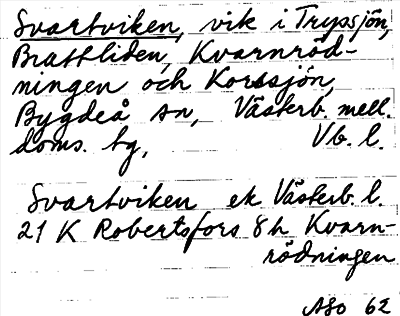 Svartviken, vik i Trypsjön,
Brattliden, Kvarnröd-
ningen och Korssjön,
Bygdeå sn, Västerb. mell.
doms. tg, Vb. l.
Svartviken ek Västerb. l.
21 K Robertsfors 8h Kvarn-
rödningen
ASo 62